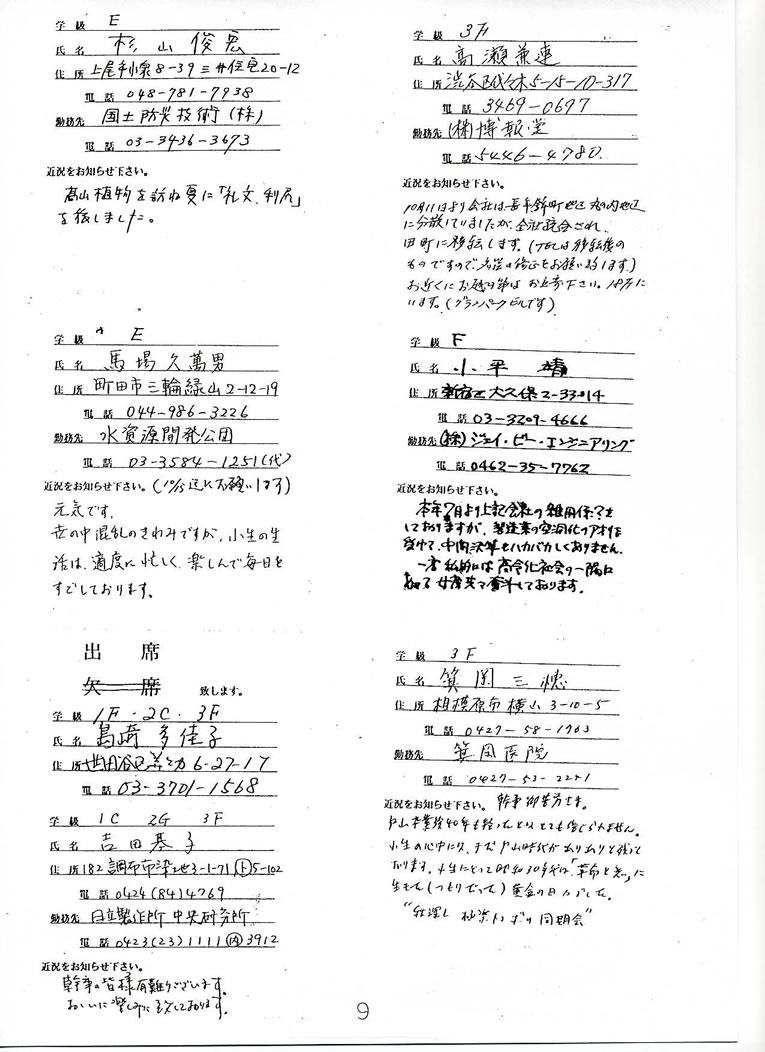 学級 E
氏名 杉山俊宏
住所 上尾市小泉8-39 三井住宅20-12
電話 048-781-7938
勤務先 国土防災技術(株)
電話 03-3436-3673
近況をお知らせ下さい。
高山植物を訪ね夏に「礼文、利尻」
を旅しました。
学級 E
氏名 馬場久萬男
住所 町田市三輪緑山2-12-19
電話 044-986-3226
勤務先 水資源開発公団
電話 03-3584-1251(代)
近況をお知らせ下さい。(10/5迄にお願いします)
元気です。
世の中混乱のきわみですが、小生の生
活は、適度に忙しく、楽しんで毎日を
すごしております。
出席
欠席 致します。
学級 1F・2C・3F
氏名 島崎多佳子
住所 世田谷区 6-27-17
電話 03-3701-1568
学級 1C 2G 3F
氏名 吉田基子
住所 182 調布市染地3-1-71 ト5-102
電話 0424(84)4769
勤務先 日立製作所 中央研究所
電話 0423(23)1111 内3912
近況をお知らせ下さい。
幹事の皆様有難うございます。
おおいに楽しみに致しております。
学級 3F
氏名 高瀬兼連
住所 渋谷区代々木5-15-10-317
電話 3469-0697
勤務先 (株)博報堂
電話 5446-4780
近況をお知らせ下さい。
10月11日より会社は、錦町地区
に分散していましたが、全社統合され、
田町に移転します。(TELは移転後の
ものですので、名簿の修正をお願い致します)
お近くにお越の節はお立寄下さい。
います。(グランパークビルです)
学級 F
氏名 小平靖
住所 新宿区大久保2-33-14
電話 03-3209-4666
勤務先 (株)ジェイ・ビー・エンジニアリング
電話 0462-35-7762
近況をお知らせ下さい。
本年7月より上記会社の雑用係?を
しておりますが、製造業の空洞化のアオリを
受けて、中内決算もハカバカしくありません。
一方私的には高令化社会の一隅に
於て 奮斗しております。
学級 3F
氏名 箕岡三穂
住所 相模原市横山3-10-5
電話 0427-58-1703
勤務先 箕岡医院
電話 0427-53-2251
近況をお知らせ下さい。幹事御苦労さま。
戸山卒業後40年も経ったとはとても信じられません。
小生の心中には、まだ戸山時代がありありと残って
おります。小生にとって昭和30年代は、「革命と恋」に
生きた(つもりだった)黄金の日々でした。
同期会"
9